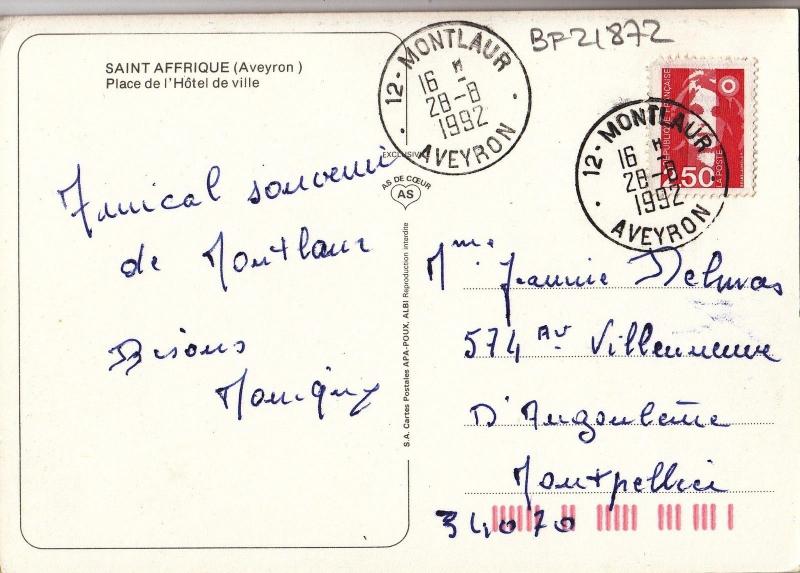 BF21872
SAINT AFFRIQUE (Aveyron )
Place de l'Hôtel de ville
12 - MONTLAUR
16 H
28-8
1992
AVEYRON
RÉPUBLIQUE FRANÇAISE
LA POSTE
2,50
12 - MONTLAUR
16 H
28-8
1992
AVEYRON
EXCLUSIVITÉ
AS DE CŒUR
AS
S.A. Cartes Postales APA-POUX, ALBI Reproduction interdite
Amical souvenir
de Montlaur
Bisous
Mme Jeannie Delmas
574 Av Villeneuve
D'Angoulème
Montpellier
34070